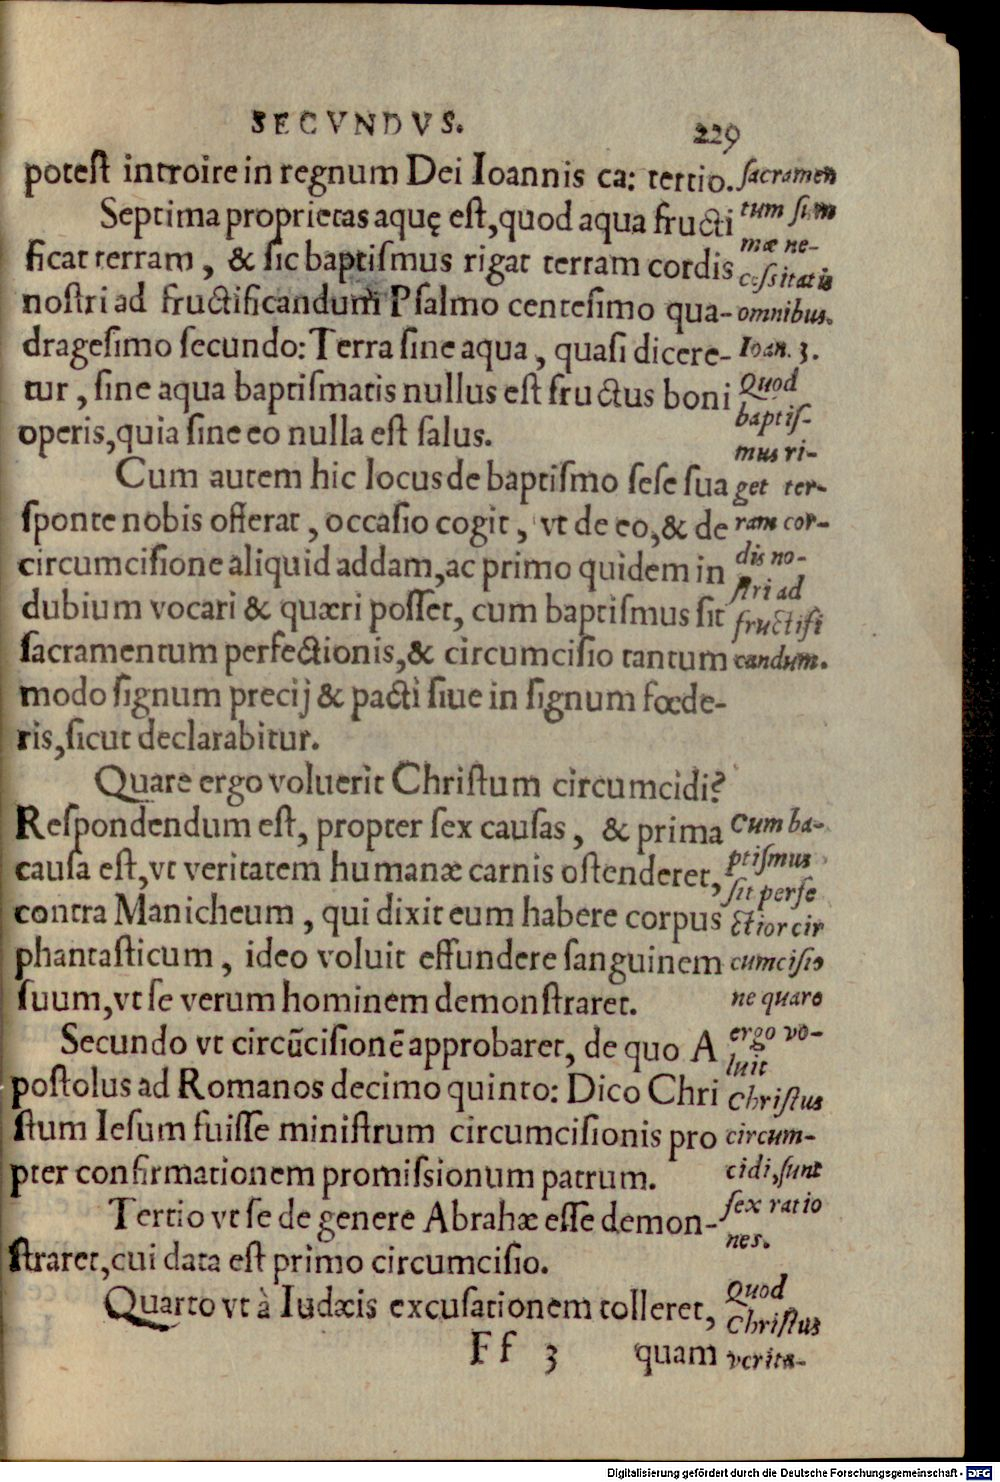 SECVNDVS. 229
poteſt introire in regnum Dei Ioannis ca: tertio.
Septima proprietas aquę eſt,quod aqua fructi
ficat terram, & ſic baptiſmus rigat terram cordis
noſtri ad fructificandum Pſalmo centeſimo qua-
drageſimo ſecundo: Terra ſine aqua, quaſi dicere-
tur, ſine aqua baptiſmatis nullus eſt fructus boni
operis,quia ſine eo nulla eſt ſalus.
Cum autem hic locus de baptiſmo ſeſe ſua
ſponte nobis offerat, occaſio cogit, vt de eo,& de
circumciſione aliquid addam,ac primo quìdem in
dubium vocari & quæri poſſet, cum baptiſmus ſit
ſacramentum perfectionis,& circumciſio tantum
modo ſignum precij & pacti ſiue in ſignum fœde-
ris,ſicut declarabitur.
Quare ergo voluerit Chriſtum circumcidi?
Reſpondendum eſt, propter ſex cauſas, & prima
cauſa eſt,vt veritatem humanæ carnis oſtenderet,
contra Manicheum, qui dixit eum habere corpus
phantaſticum, ideo voluit effundere ſanguinem
ſuum,vt ſe verum hominem demonſtraret.
Secundo vt circũciſionẽ approbaret, de quo A
poſtolus ad Romanos decimo quinto: Dico Chri
ſtum Ieſum fuiſſe miniſtrum circumciſionis pro
pter confirmationem promiſsionum patrum.
Tertio vt ſe de genere Abrahæ eſſe demon-
ſtraret,cui data eſt primo circumciſio.
Quarto vt à Iudæis excuſationem tolleret,
Ff 3 quam
ſacramen
tum ſum
mæ ne-
ceſsitatis
omnibus.
Ioan. 3.
Quod
baptiſ-
mus ri-
get ter-
ram cor-
dis no-
ſtri ad
fructifi
candum.
Cum ba-
ptiſmus
ſit perfe
ctior cir
cumciſio
ne quare
ergo vo-
luit
Chriſtus
circum-
cidi,ſunt
ſex ratio
nes.
Quod
Chriſtus
verita-
Digitalisierung gefördert durch die Deutsche Forschungsgemeinschaft - DFG